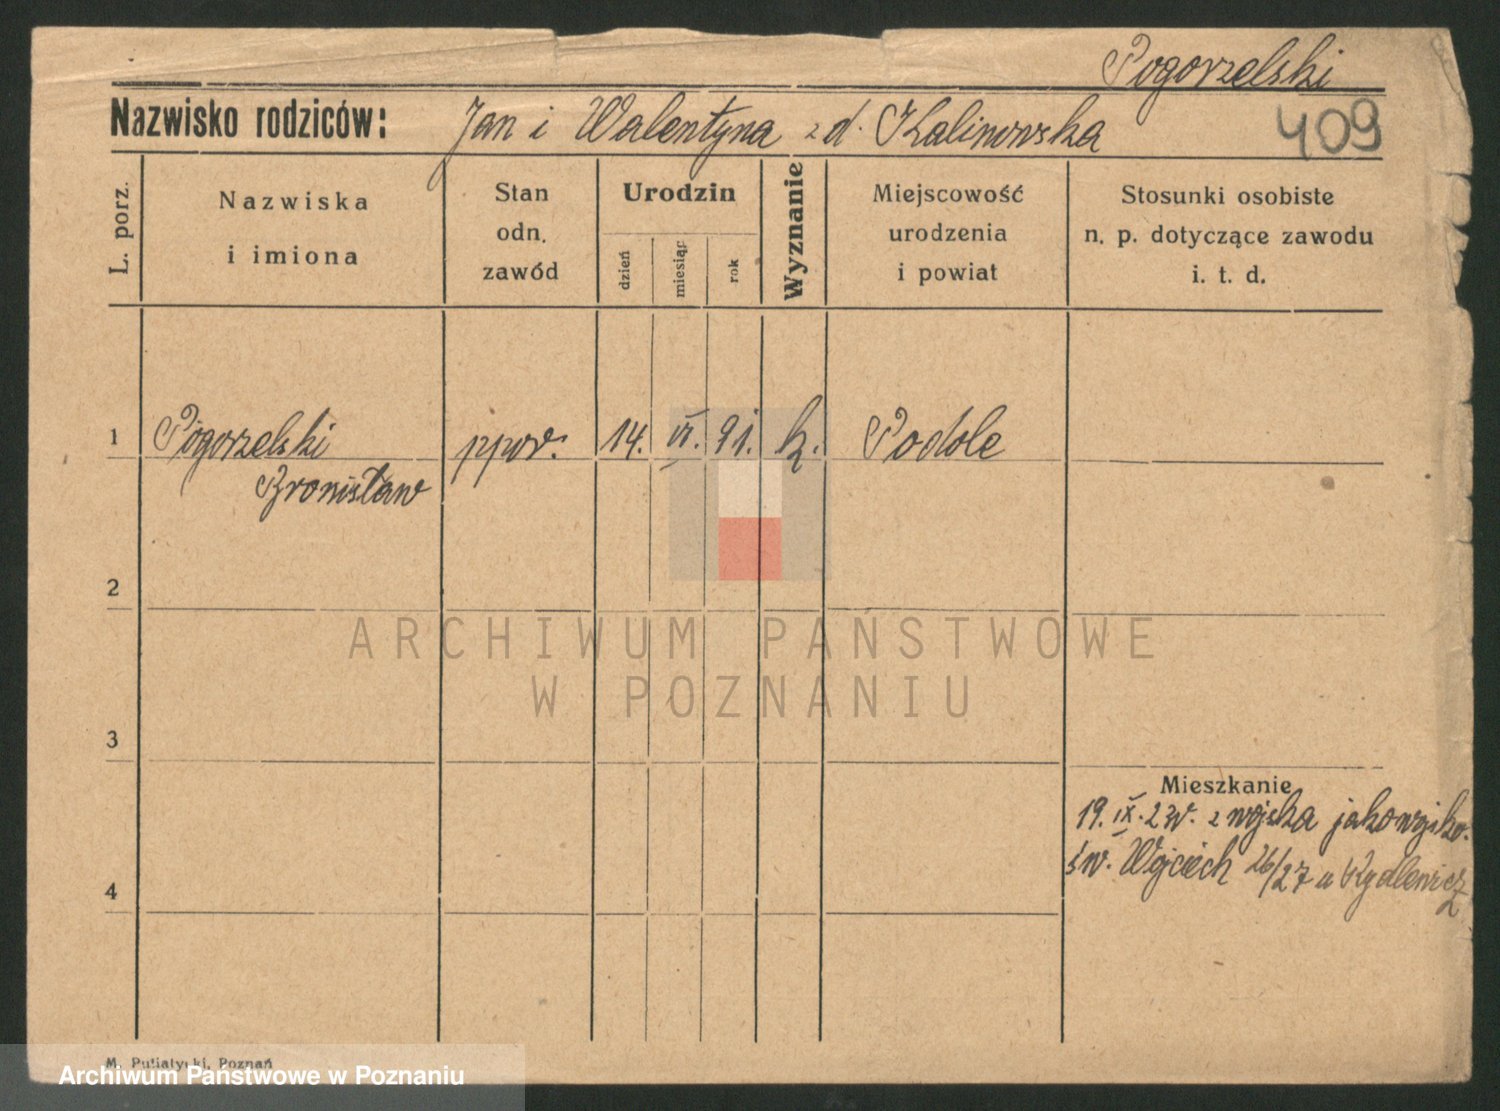 Pogorzelski
Nazwisko rodziców: Jan i Walentyna z d. Kalinowska
409
L. porz.
Nazwiska
i imiona
Stan
odn.
zawód
Urodzin
dzień
miesiąc
rok
Wyznanie
Miejscowość
urodzenia
i powiat
Stosunki osobiste
n. p. dotyczące zawodu
i. t. d.
1 Pogorzelski ppor. 14. VI. 91. k. Podole
Bronisław
2
ARCHIWUM PAŃSTWOWE
W POZNANIU
3
Mieszkanie
19. IX. 2 z wojska jako wojsko.
św. Wojciech 26/27 u Rydlewicz
4
M. Pujiatycki, Poznań
Archiwum Państwowe w Poznaniu